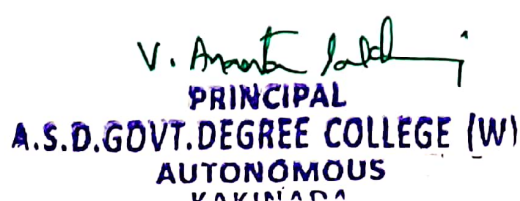 V. Ananta Lakshmi
PRINCIPAL
A.S.D.GOVT.DEGREE COLLEGE (W)
AUTONOMOUS
KAKINADA